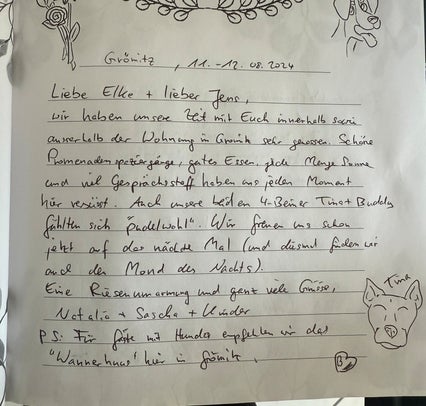 Grömitz, 11.-12.08.2024
Liebe Elke + lieber Jens,
wir haben unsere Zeit mit Euch innerhalb sowie
ausserhalb der Wohnung in Grömitz sehr genossen. Schöne
Promenadenspaziergänge, gutes Essen, jede Menge Sonne
und viel Gesprächsstoff haben uns jeden Moment
hier versüsst. Auch unsere beiden 4-Beiner Tina + Buddy
fühlten sich "pudelwohl". Wir freuen uns schon
jetzt auf das nächste Mal (und diesmal finden wir
auch den Mond des Nachts).
Eine Riesenumarmung und ganz viele Grüsse,
Natalia + Sascha + Kinder
PS: Für Gäste mit Hunden empfehlen wir das
hier in Grömitz.
Tina
B